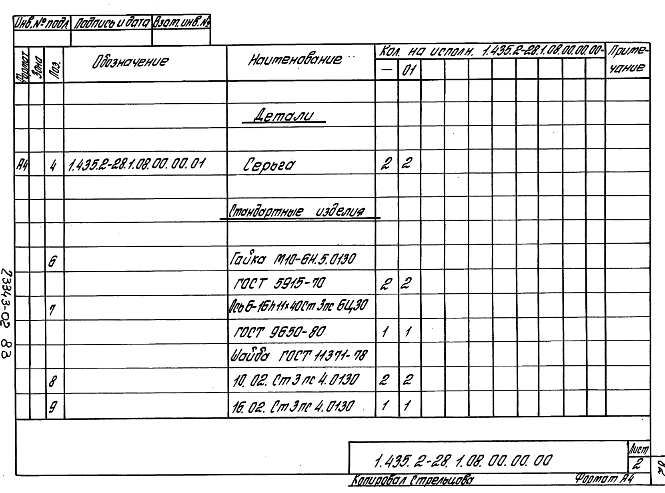 Инв.№ подл. Подпись и дата Взам.инв.№
Формат Зона Поз. Обозначение Наименование Кол. на исполн. 1.435.2-28.1.08.00.00.00- Приме-
— 01 чание
Детали
А4 4 1.435.2-28.1.08.00.00.01 Серьга 2 2
Стандартные изделия
6 Гайка М10-6Н.5.0130
ГОСТ 5915-70 2 2
7 Ось 6-16h11×40 Ст 3пс 6Ц30
ГОСТ 9650-80 1 1
Шайба ГОСТ 11371-78
8 10.02. Ст 3 пс 4.0130 2 2
9 16.02. Ст 3 пс 4.0130 1 1
23343-02 83
1.435.2-28.1.08.00.00.00 Лист
2
Копировал Стрельцова Формат А4